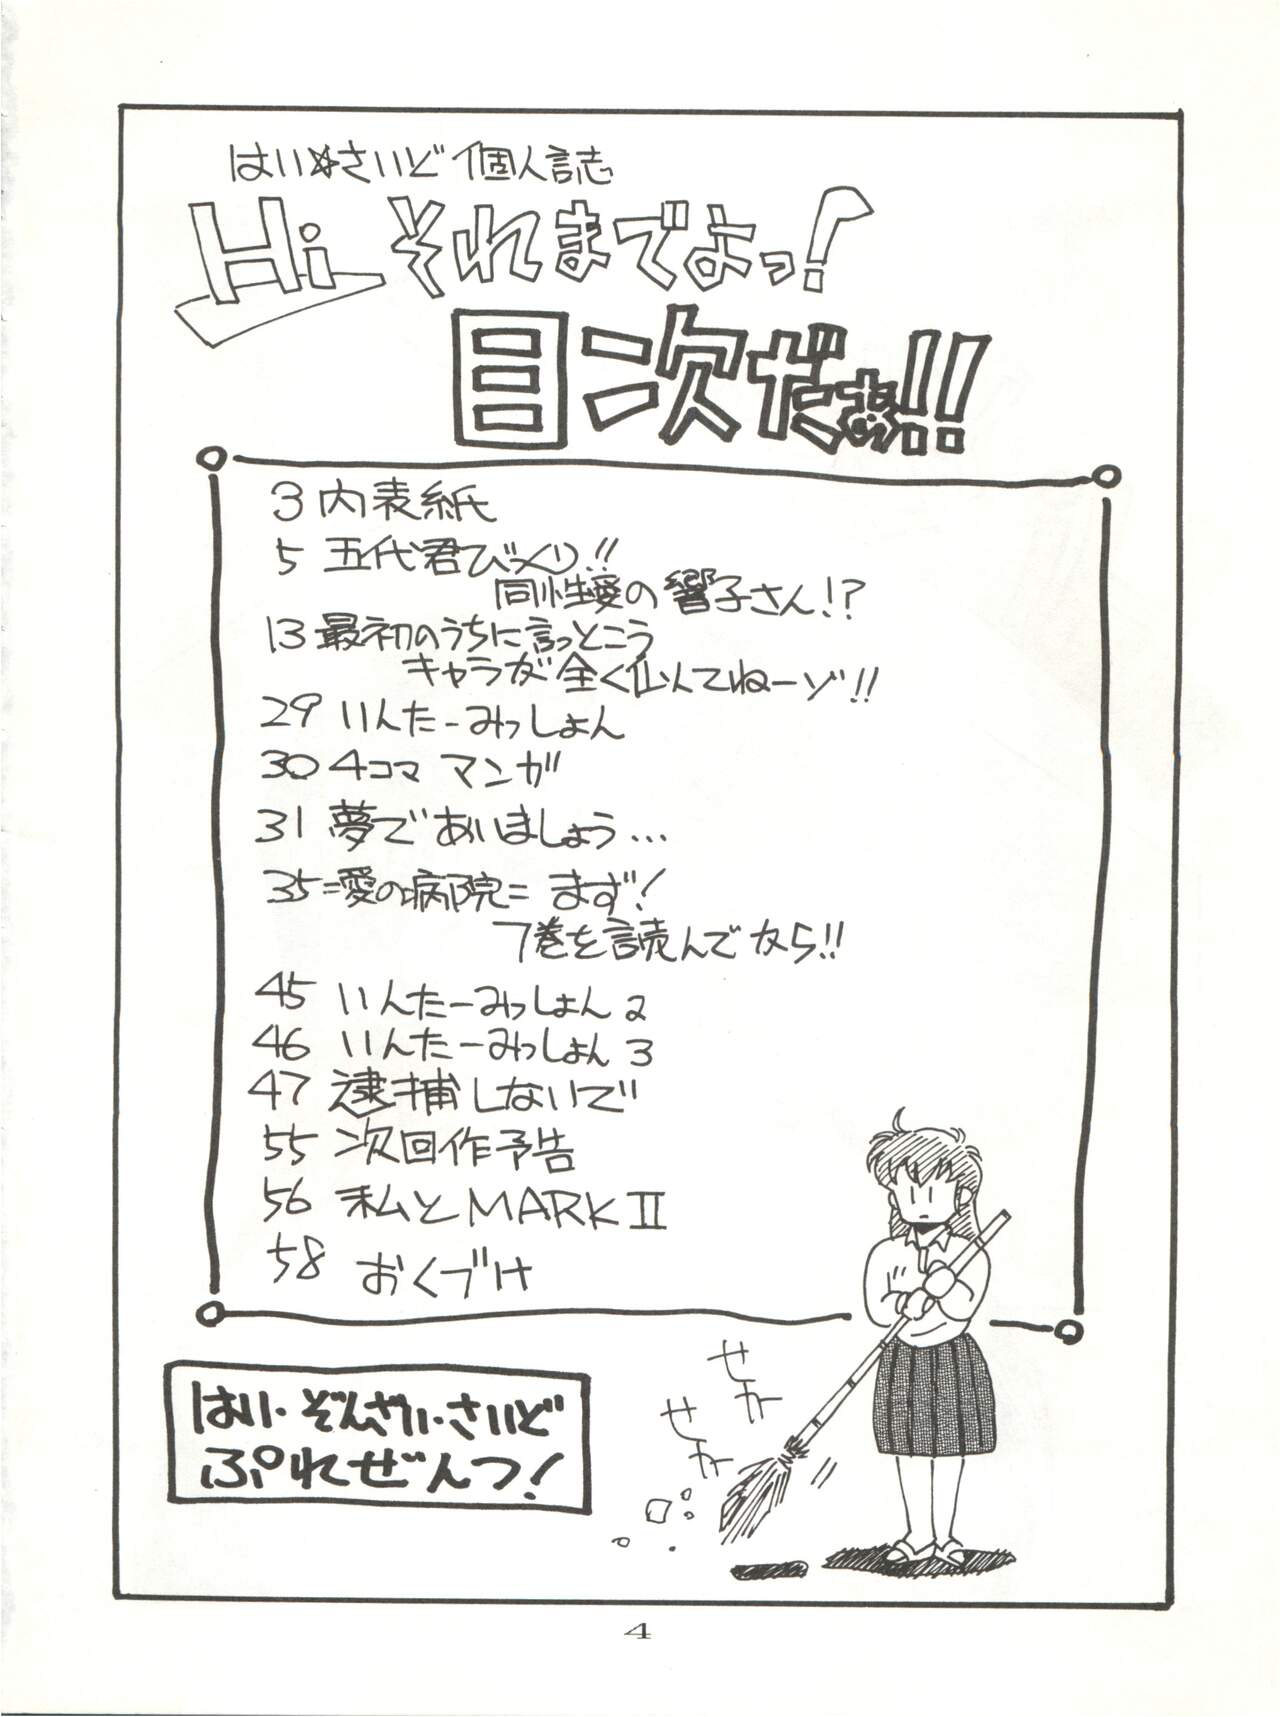 はい☆さいど個人誌
Hi それまでよっ!
目次だぁ!!
3 内表紙
5 五代君びっくり!!
同性愛の響子さん!?
13 最初のうちに言っとこう
キャラが全く似てねーゾ!!
29 いんたーみっしょん
30 4コママンガ
31 夢であいましょう…
35 =愛の病院= まず!
7巻を読んでから!!
45 いんたーみっしょん2
46 いんたーみっしょん3
47 逮捕しないで
55 次回作予告
56 私とMARKⅡ
58 おくづけ
せかー
せかー
はい・ぞんざい・さいど
ぷれぜんつ!
4